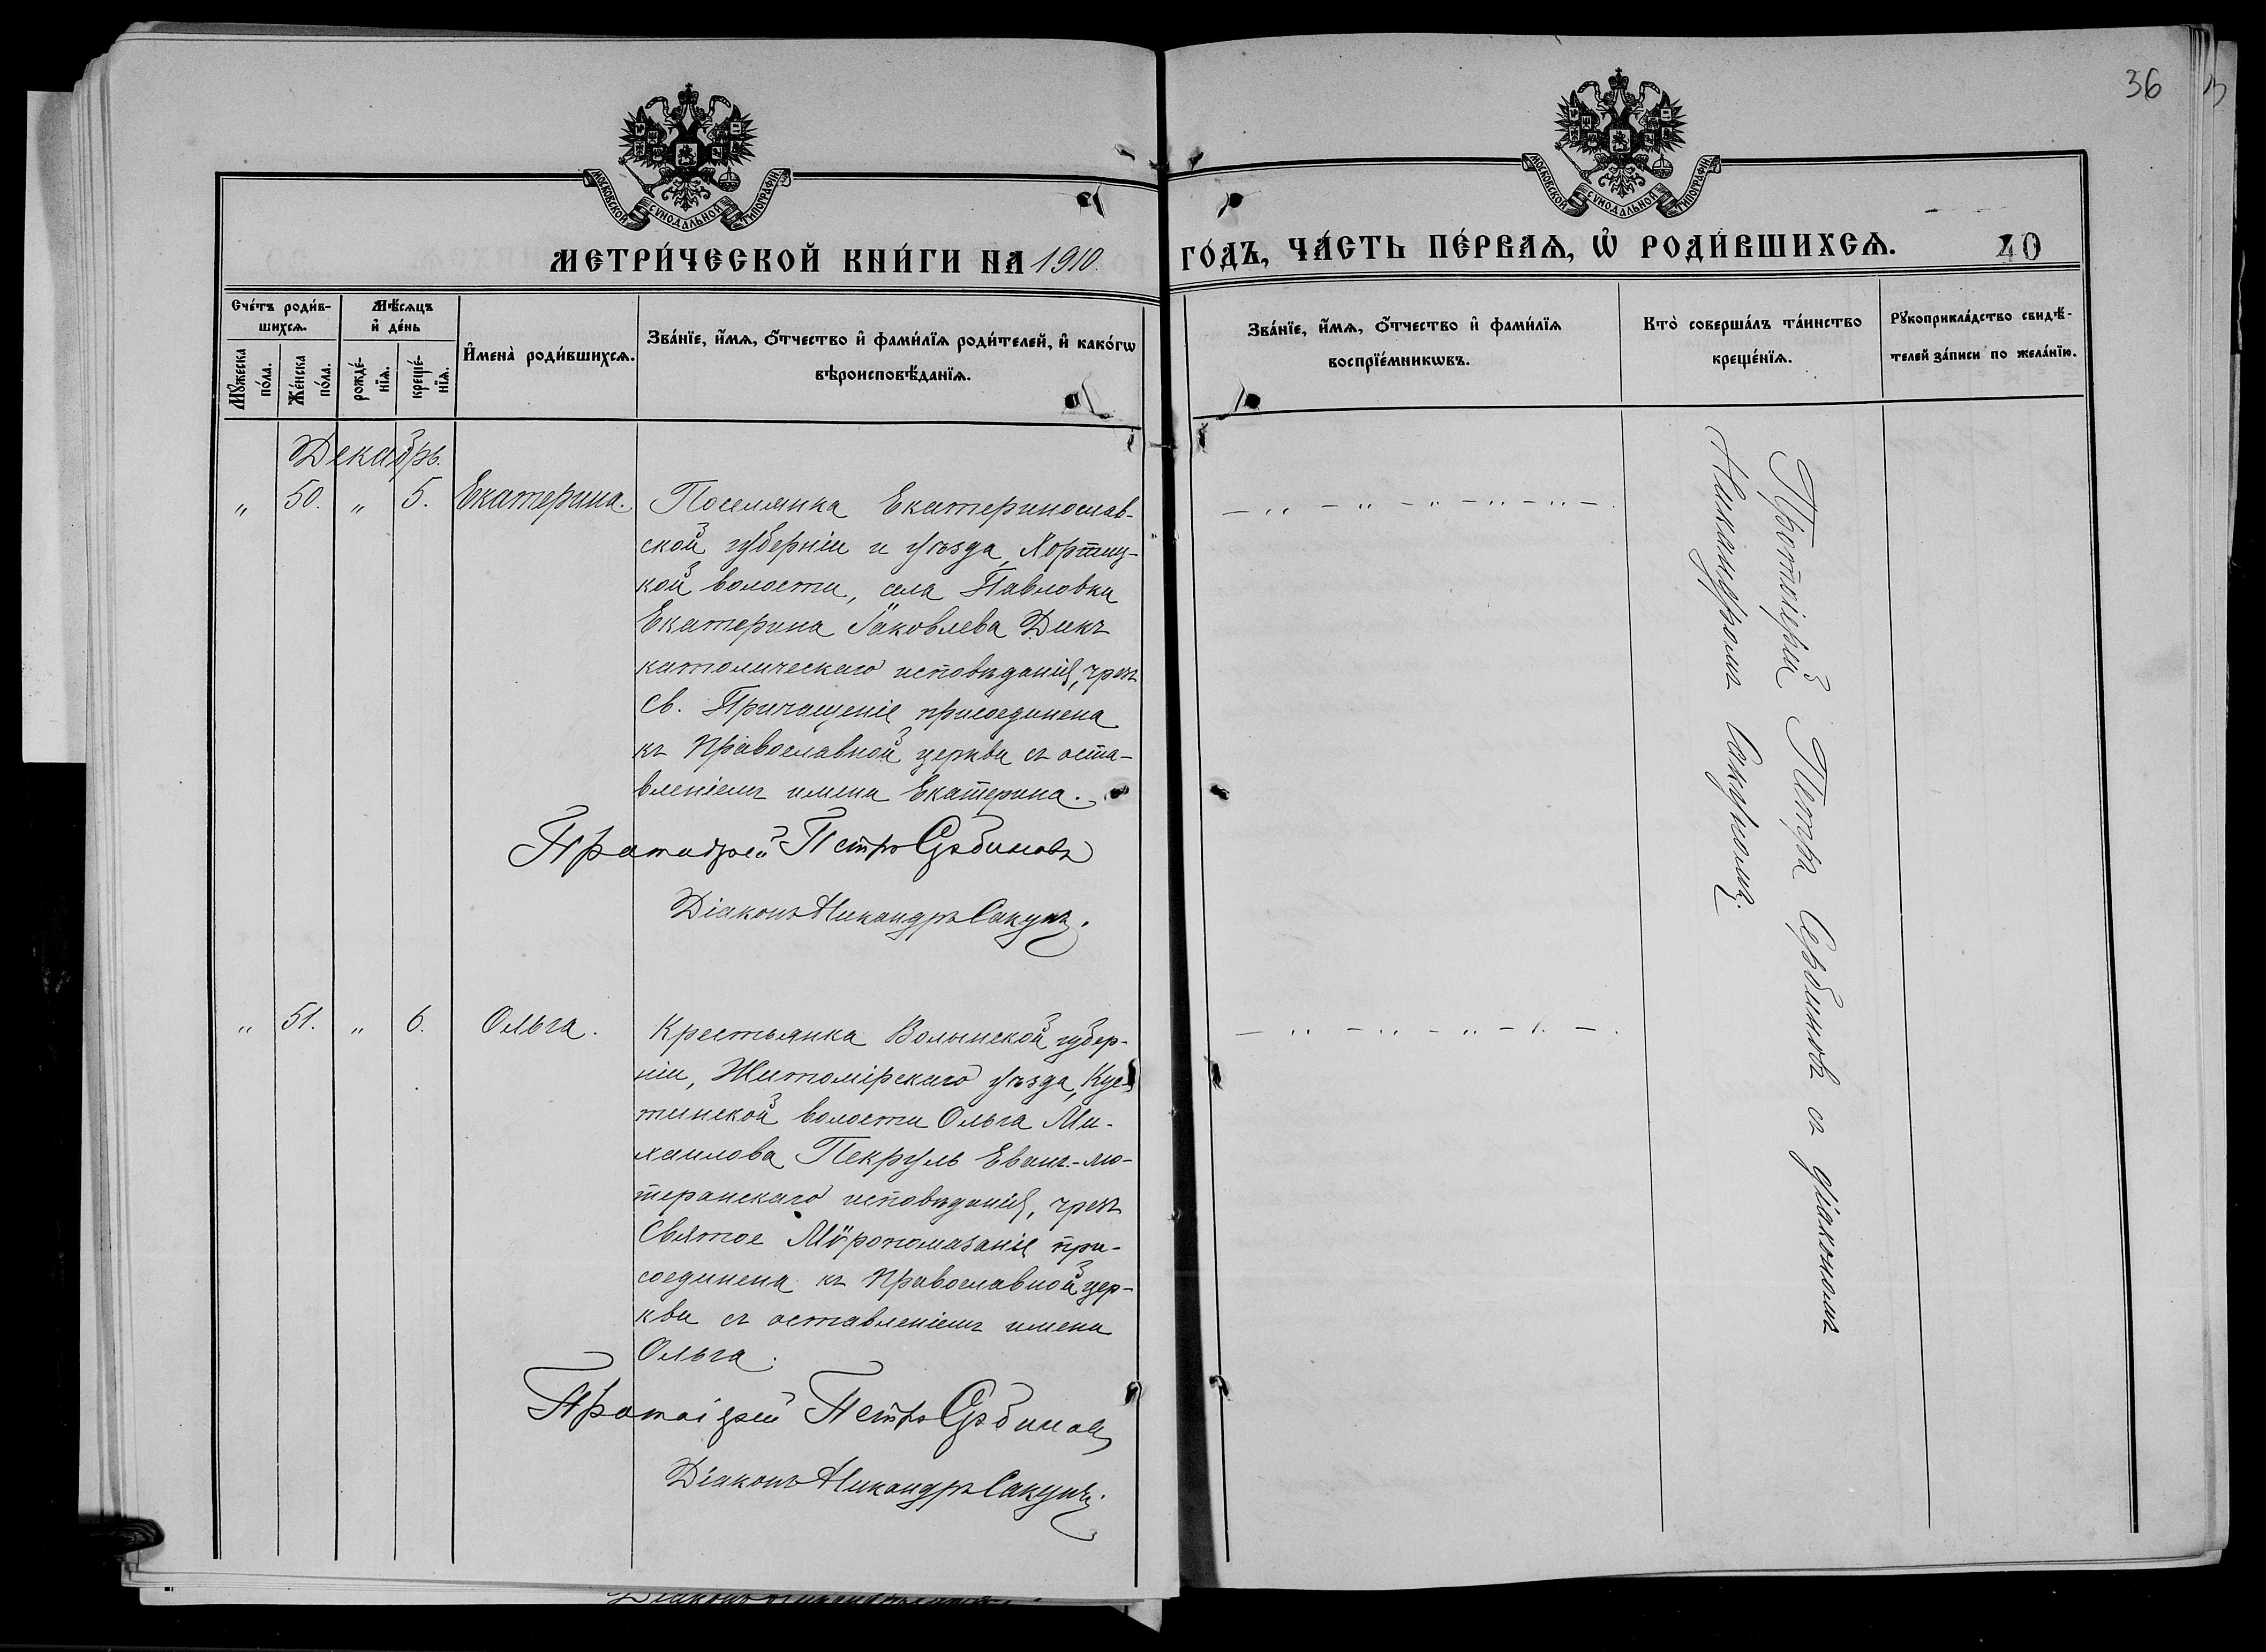 36
МОСКОВСКОЙ СѴНОДАЛЬНОЙ ТИПОГРАФІИ
МОСКОВСКОЙ СѴНОДАЛЬНОЙ ТИПОГРАФІИ
МЕТРИ́ЧЕСКОЙ КНИ́ГИ НА 1910.
ГО́ДЪ, ЧА́СТЬ ПЕ́РВАѦ, Ѡ҆ РОДИ́ВШИХСѦ. 40
Сче́тъ роди́в-
шихсѧ.
Мꙋжеска по́ла.
Же́нска по́ла.
Мѣ́сѧцъ
и҆ де́нь
рожде́-
нїѧ.
креще́-
нїѧ.
И҆мена̀ роди́вшихсѧ.
Зва́нїе, и҆́мѧ, ѻ҆́тчество и҆ фами́лїѧ роди́телей, и҆ како́гѡ
вѣроисповѣ́данїѧ.
Зва́нїе, и҆́мѧ, ѻ҆́тчество и҆ фами́лїѧ
воспрїе́мникѡвъ.
Кто̀ соверша́лъ та́инство
креще́нїѧ.
Рꙋкоприкла́дство свидѣ́-
телей за́писи по жела́нїю.
Декабрь.
„ 50. „ 5. Екатерина.
Поселянка Екатеринослав-
ской губерніи и уѣзда, Хортиц-
кой волости, села Павловки
Екатерина Яковлева Дикъ
католическаго исповѣданія, чрезъ
Св. Причащеніе присоединена
къ Православной церкви съ оста-
вленіемъ имени Екатерина.
Протоіерей Петръ Сербиновъ
Діаконъ Никандръ Сакунъ.
„ 51. „ 6. Ольга.
Крестьянка Волынской губер-
ніи, Житомірскаго уѣзда, Кус-
тинской волости Ольга Ми-
хаилова Пекруль Еванг.-лю-
теранскаго исповѣданія, чрезъ
Святое Мѵропомазаніе при-
соединена къ Православной цер-
кви съ оставленіемъ имени
Ольга.
Протоіерей Петръ Сербиновъ
Діаконъ Никандръ Сакунъ.
– „ – „ – „ – „ – „ – .
– „ – „ – „ – „ – .
Протоіерей Петръ Сербиновъ съ діакономъ
Никандромъ Сакуномъ.